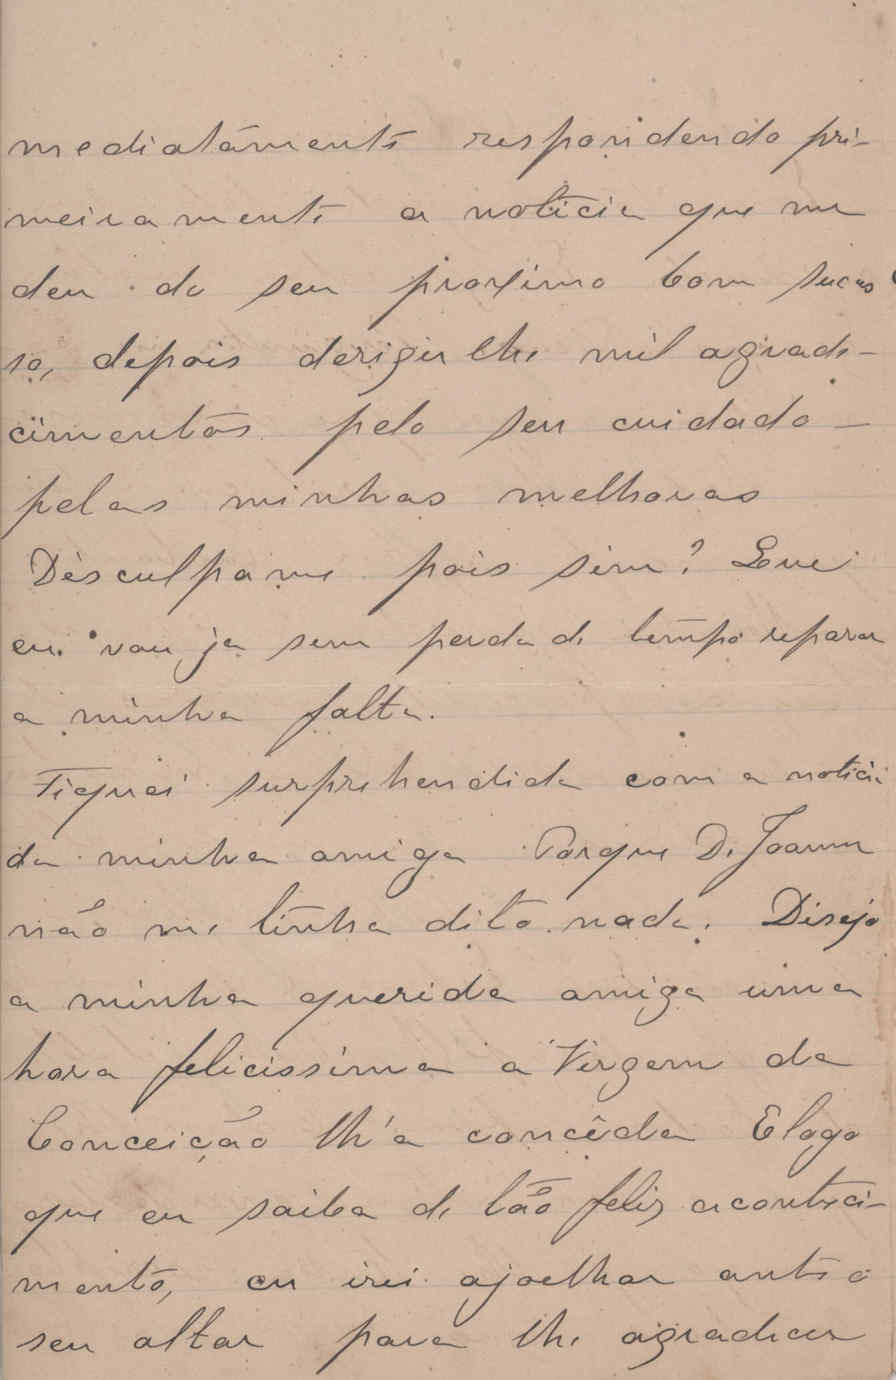 mediatámente respondendo pri-
meiramente a noticia que me
deu do seu proximo bom suces
so, depois derigir lhe mil agrade-
cimentos pelo seu cuidado -
pelas minhas melhoras
Désculpame pois sim? Que
eu vou ja sem perda de tempo reparar
a minha falta.
Fiquei surprehendida com a noticia
da minha amiga Porque D. Joanna
não me tinha dito nada. Disejo
a minha querida amiga uma
hora felicissima a Virgem da
Conceição lh'a concêda E logo
que eu saiba de tão feliz acontici-
mento, eu irei ajoelhar ante o
seu altar para lhe agradecer